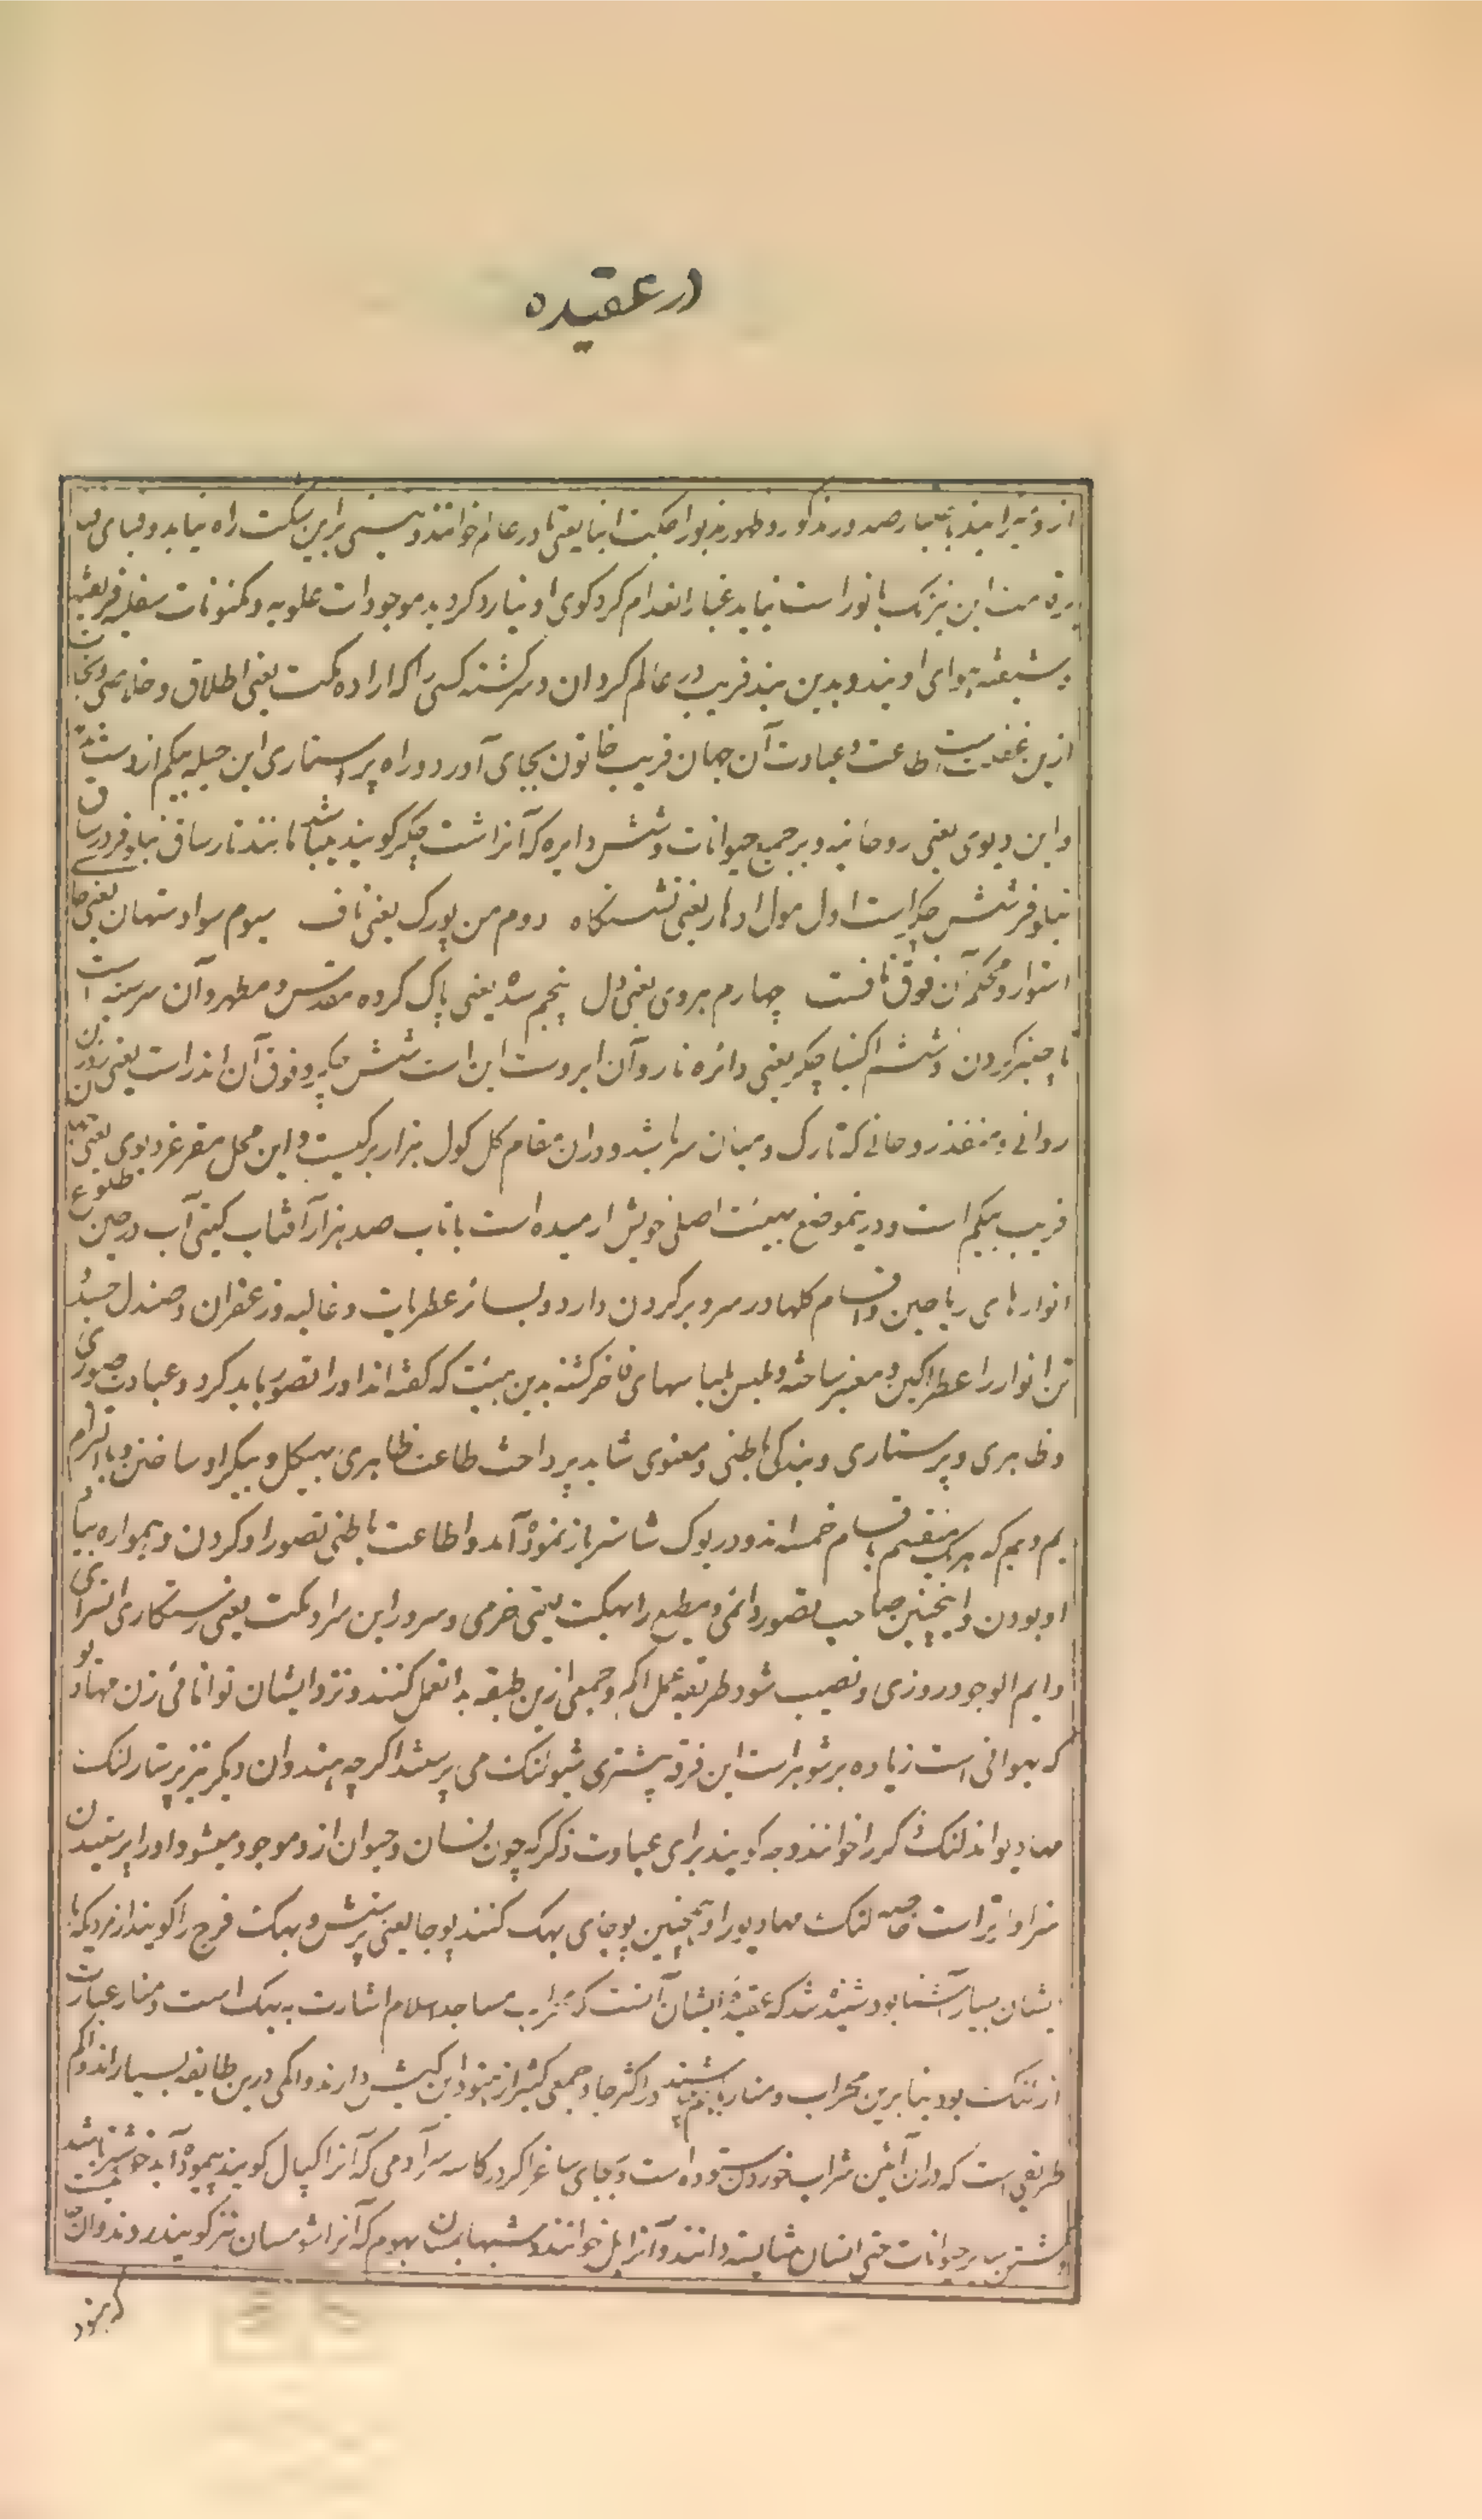 در عقیده
از و بر ایند باعتبار صدور مذکور و ظهور مزبور اجکت انبا یعنی مادر عالم خوانند و نیستی برین شکت راه نیابد و لباس
این نیزنک بانو راست نیابد غبار انعدام کرد کوی او نیارد کردید موجودات علویه و مکنونات سفلیه فریفته
شیفته هوای اویند و بدین بند فریب در عالم کردان و سرکشته کسی را که اراده مکت یعنی اطلاق و خلاصی و نجات
ازین طاعت و عبادت آن جهان فریب خاتون بجای آورد و راه پرستاری این حیله بیکم از دست ندهد
و این دیوی یعنی روحانیه در جمیع حیوانات و شش دایره که آنرا شت چکر کویند میباشد مانند تار ساق نیلوفر و در ساق
نیلوفر شش چکر است اول مول ادهار یعنی نشستگاه دوم من پورک یعنی ناف سیوم سوادستهان یعنی جا
استوار و محکم آن فوق نافست چهارم هردی یعنی دل پنجم سده یعنی پاک کرده مقدس و مطهر و آن سر سینه است
تا چنبر کردن و ششم اکنیا چکر یعنی دائره نار و آن ابروست این است شش چکر و فوق آن اندراست یعنی روزن
روانی و منفذ روحانی که تارک و میان سر باشد و دران مقام کل کول هزار برکیست و این محل مقر غر دیوی یعنی
فریب بیکم است و درینموضع بهیئت اصلی خویش ارمیده است با تاب صد هزار آفتاب کیتی تاب در حین طلوع
انوارهای ریاحین و اقسام کلها در سر و بر کردن دارد و بسائر عطریات و غالیه و زعفران و صندل
تن انوار را عطراکین و معنبر ساخته و ملبس بلباسهای فاخر کشته بدین هیئت که کفته اند او را تصور باید کرد و عبادت صوری
و ظاهری و پرستاری و بندکی باطنی و معنوی شاید پرداخت طاعت ظاهری بهیکل و پیکر او ساختن و با التزام
یم و نیم که هریک منقسم باقسام خمسه اند و در یوک شاستر باز نموده آمد و اطاعت باطنی تصور او کردن و همواره بیاد
او بودن و اینچنین صاحب تصور دائمی و مطیع را بهکت یعنی خرمی و سرور این سرا و مکت یعنی رستکاری آنسرای
دایم الوجود روزی و نصیب شود طریقه عمل اکم و جمعی ازین طبقه بدان عمل کنند و نزد ایشان توانائی زن مهادیو
که بهوانی است زیاده بر شوهر است این فرقه بیشتری شیو لنک می پرستند اکرچه هندوان دیکر نیز پرستار لنک
مهادیو اند لنک ذکر را خوانند وجه کویند برای عبادت ذکر که چون انسان و حیوان ازو موجود میشود او را پرستیدن
سزاوارتر است خاصه لنک مهادیو را و همچنین پوجای بهک کنند پوجا یعنی پرستش و بهک فرج را کویند از مردیکه با
یشان بسیار آشنا بود شنیده شد که عقیده ایشان آنست که محراب مساجد اسلام اشارت به بهک است و منار عبارت
از لنک بود بنابرین محراب و منار با هم میباشند در اکثر جا و جمعی کثیر از هنود این کیش دارند و اکمی درین طایفه بسیار اند و اکم
طریقی است که دران آئین شراب خوردن ستوده است و بجای ساغر اکر در کاسه سر آدمی که آنرا کپال کویند پیموده آید خوشتر باشد
و کشتن سایر حیوانات حتی انسان شایسته دانند و آنرا بل خوانند و شبها بمسان بهوم که آنرا شومسان نیز کویند روند و آن
که هنود